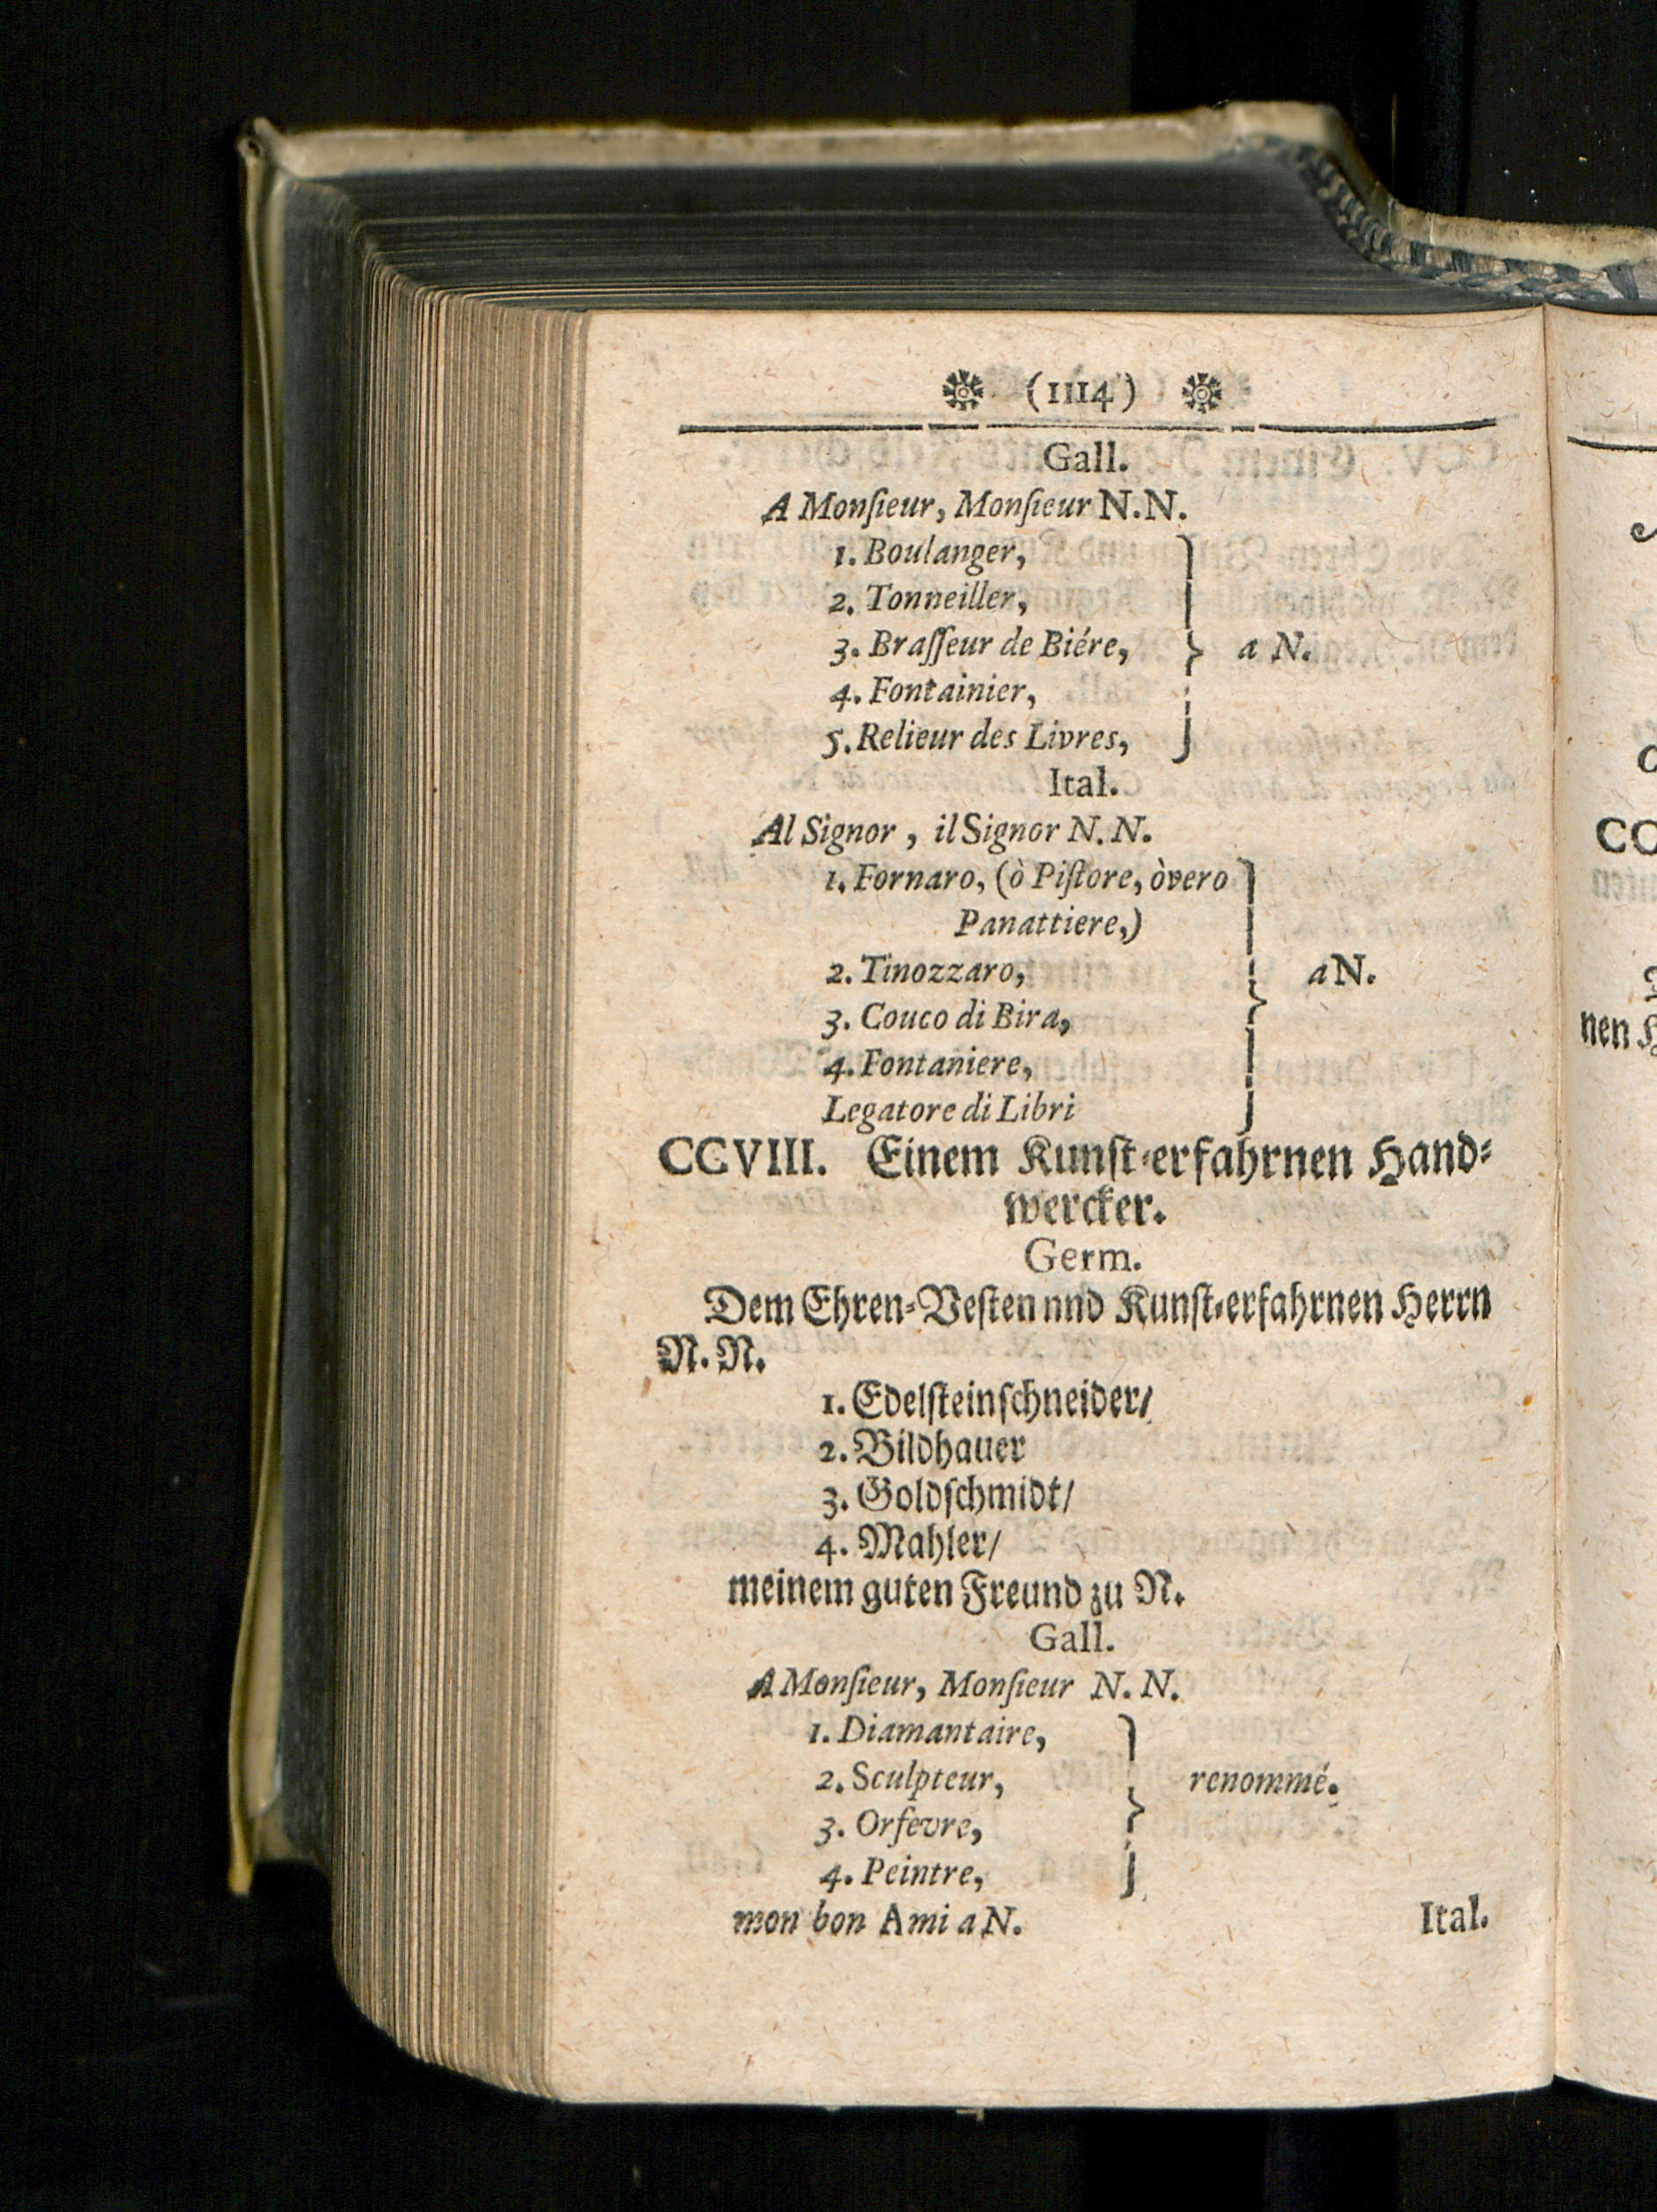 (1114)
Gall.
A Monſieur, Monſieur N.N.
1. Boulanger,
2. Tonneiller,
3. Braſſeur de Biére, a N.
4. Fontainier,
5. Relieur des Livres,
Ital.
Al Signor, il Signor N.N.
1. Fornaro, (ò Piſtore, òvero
Panattiere,)
2. Tinozzaro, a N.
3. Couco di Bira,
4. Fontaniere,
Legatore di Libri
CCVIII. Einem Kunſt-erfahrnen Hand-
wercker.
Germ.
Dem Ehren-Veſten nnd Kunſt-erfahrnen Herrn
N. N.
1. Edelſteinſchneider/
2. Bildhauer
3. Goldſchmidt/
4. Mahler/
meinem guten Freund zu N.
Gall.
A Monſieur, Monſieur N. N.
1. Diamantaire,
2. Sculpteur, renommé.
3. Orfevre,
4. Peintre,
mon bon Ami a N.
Ital.